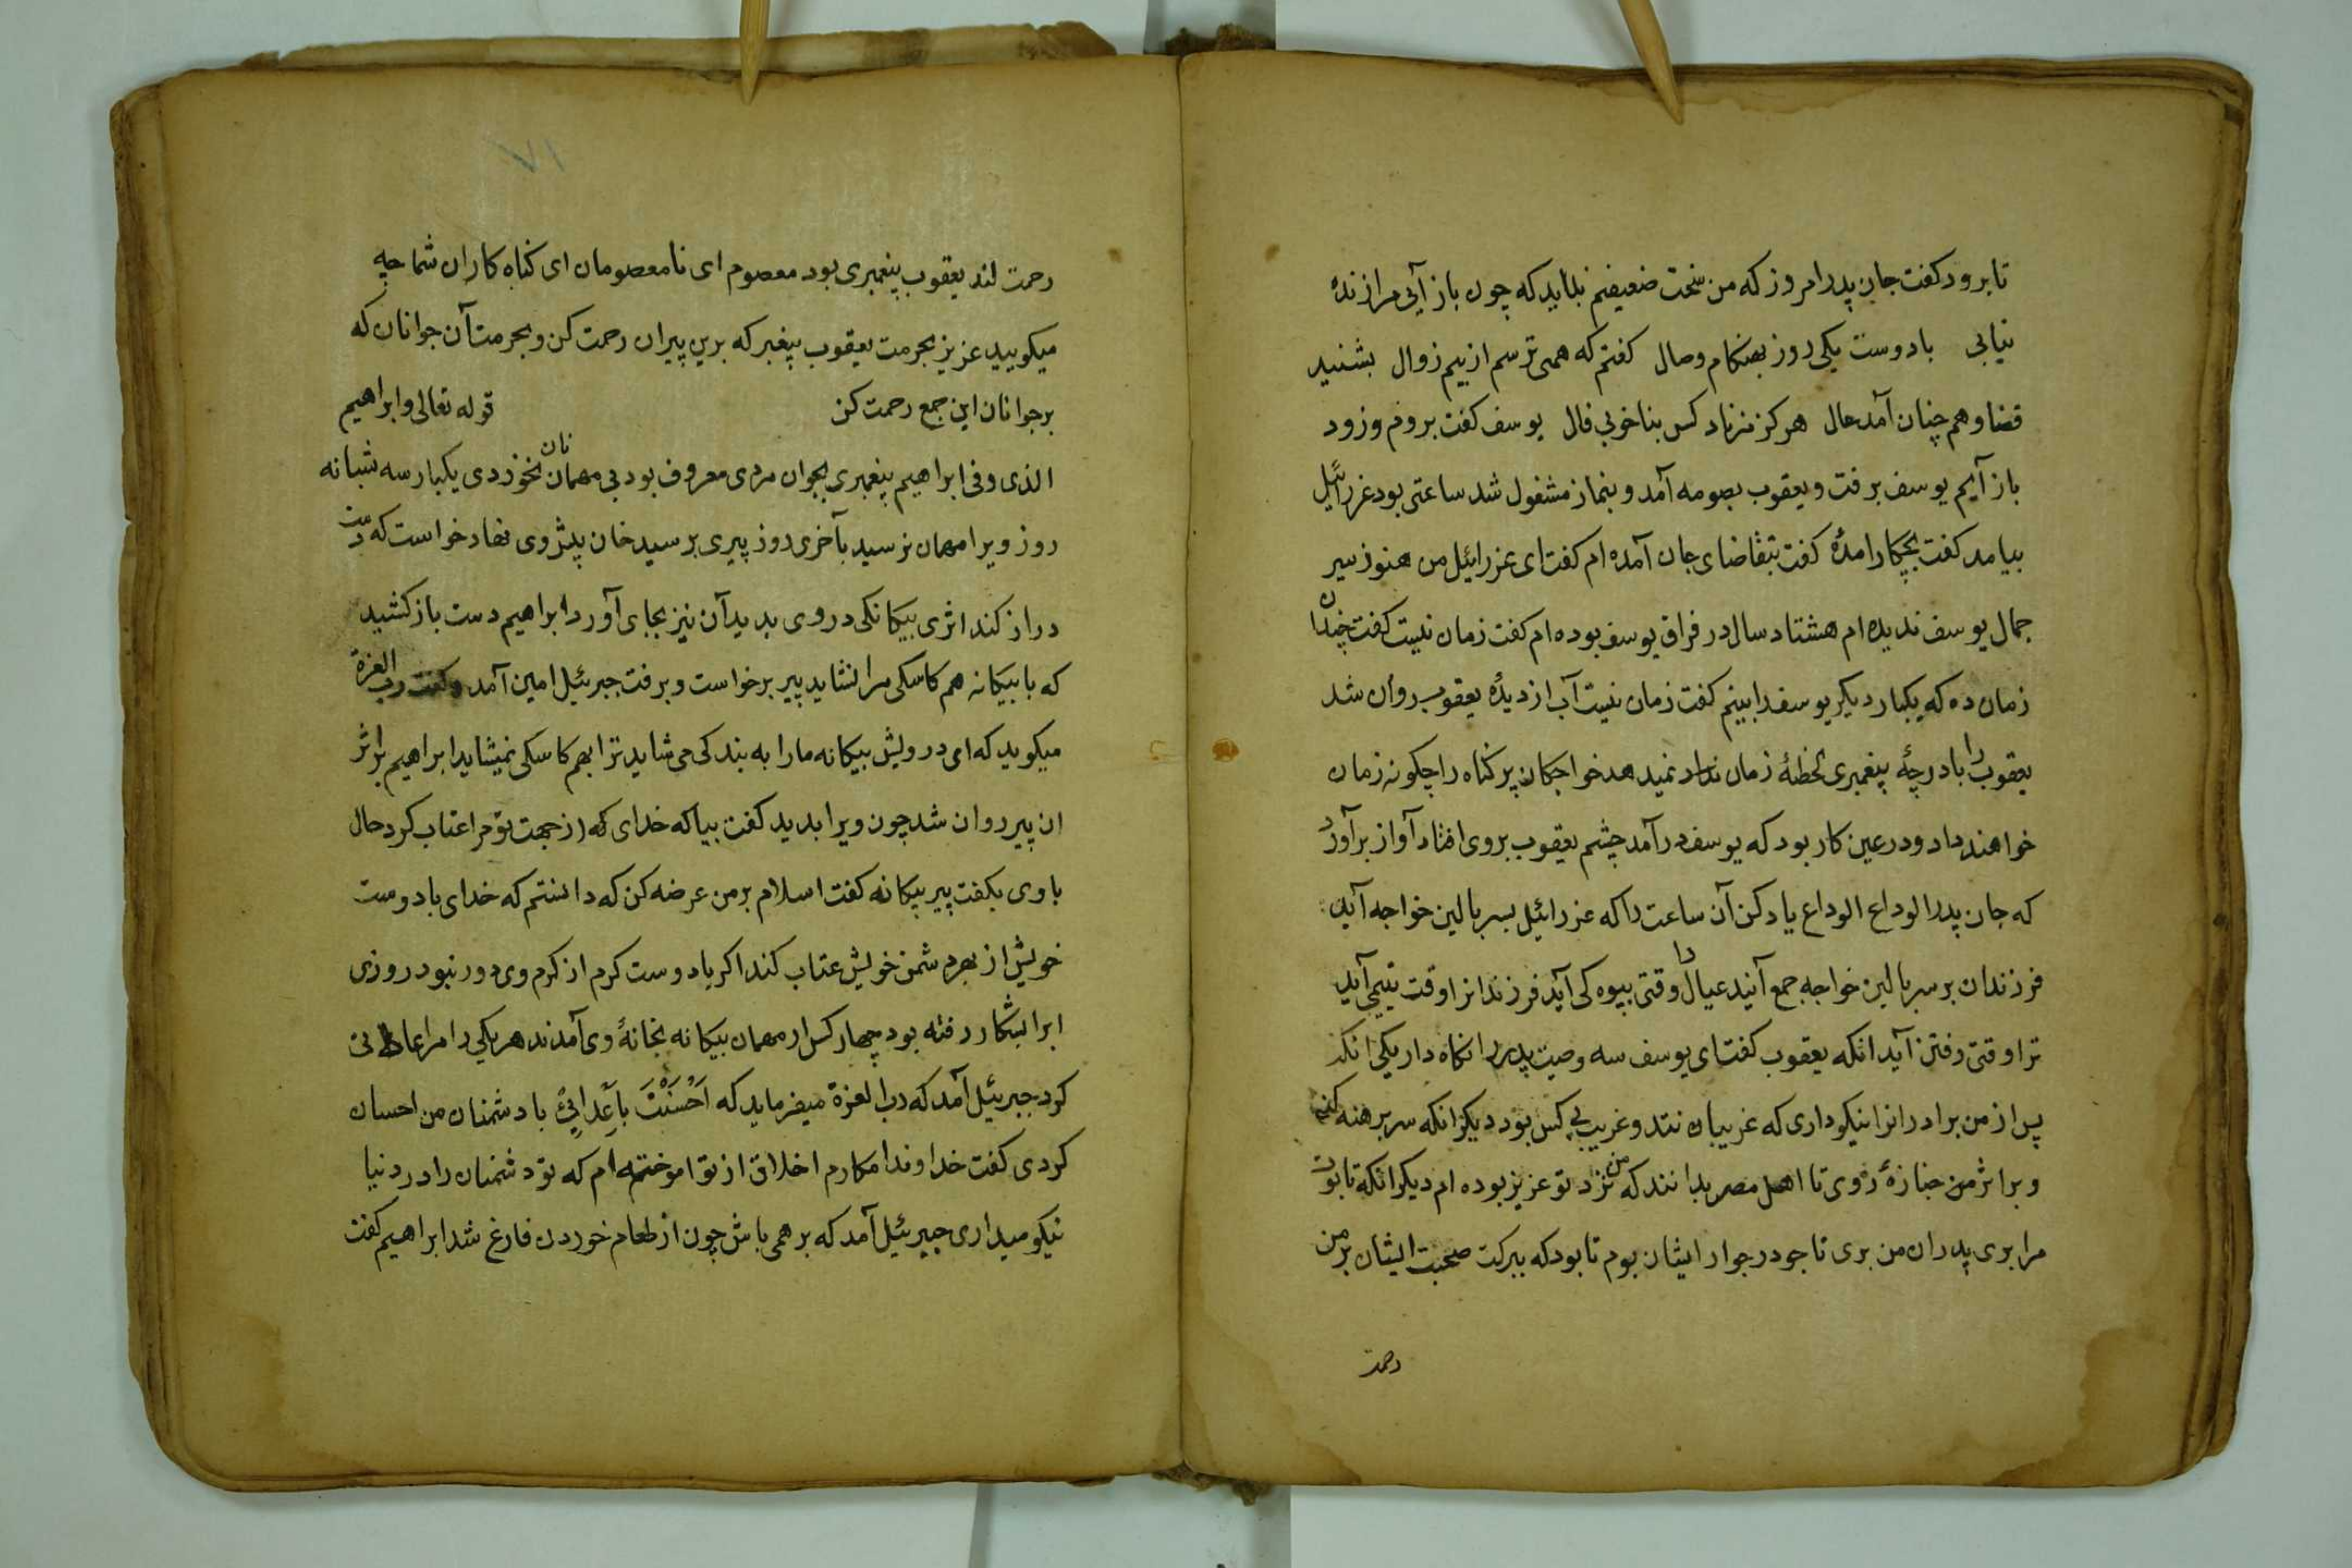 تا برود کفت جان پدر امروز که من سخت ضعیفم نباید که چون باز آئی مرا زنده
نیابی بادوست یکی روز بهنکام وصال کفتم که همی ترسم از بیم زوال بشنید
قضا و هم چنان آمد حال هرکز نزناد کس بناخوبی فال یوسف کفت بروم وزود
باز آیم یوسف برفت و یعقوب بصومعه آمد و بنماز مشغول شد ساعتی بود عزرائیل
بیامد کفت بچکار امدهٔ کفت بتقاضای جان آمده ام کفت ای عزرائیل من هنوز سیر
جمال یوسف ندیده ام هشتاد سال در فراق یوسف بوده ام کفت زمان نیست کفت چندان
زمان ده که یکبار دیکر یوسف را بینم کفت زمان نیست آب از دیدهٔ یعقوب روان شد
یعقوب را با درجهٔ پیغمبری لحظهٔ زمان نداد نمیدهد خواجکان پر کناه را چکونه زمان
خواهند داد و در عین کار بود که یوسف در آمد چشم یعقوب بروی افتاد آواز برآورد
که جان پدر الوداع الوداع یاد کن آن ساعت را که عزرائیل بسر بالین خواجه آید
فرزندان بر سر بالین خواجه جمع آیند عیال را وقتی بیوه کی آید فرزندانرا وقت یتیمی آید
ترا وقتی رفتن آید انکه یعقوب کفت ای یوسف سه وصیت پدر را نکاه دار یکی انکه
پس از من برادرانرا نیکوداری که غریبان نند و غریب بی کس بود دیکر انکه سر برهنه کنی
و بر اثر من جنازهٔ روی تا اهل مصر بدانند که من نزد تو عزیز بوده ام دیکر انکه تابوت
مرا بری پدران من بری تا جود در جوار ایشان بوم تا بود که ببرکت صحبت ایشان بر من
رحمت
۷۱
رحمت کند یعقوب پیغمبری بود معصوم ای نامعصومان ای کناه کاران شما چه
میکویید عزیز بحرمت یعقوب پیغبر که برین پیران رحمت کن و بحرمت آن جوانان که
بر جوانان این جمع رحمت کن قوله تعالی و ابراهیم
الذی وفی ابراهیم پیغمبری بجوان مردی معروف بود بی مهمان نان نخوردی یکبار سه شبانه
روز ویرا مهمان نرسید بآخری روز پیری برسید خان پیش وی نهاد خواست که دست
دراز کند اثری بیکانکی در وی بدید آن نیز بجای آورد ابراهیم دست باز کشید
که با بیکانه هم کاسکی مرا نشاید پیر برخواست و برفت جبرئیل امین آمد و کفت رب العزة
میکوید که ای درویش بیکانه مارا به بندکی می شاید ترا بهم کاسکی نمیشاید ابراهیم بر اثر
ان پیر روان شد چون ویرا بدید کفت بیا که خدای که از جهت تو مرا عتاب کرد حال
با وی بکفت پیر بیکانه کفت اسلام بر من عرضه کن که دانستم که خدای با دوست
خویش از بهر دشمن خویش عتاب کند اکر با دوست کرم از کرم وی دور نبود روزی
ابرا بشکار رفته بود چهار کس از مهمان بیکانه بخانهٔ وی آمدند هر یکی را مراعاتی
کرد جبرئیل آمد که رب العزة میفرماید که اَحْسَنْتَ بِاَعْدائِی با دشمنان من احسان
کردی کفت خداوندا مکارم اخلاق از تو اموخته ام که تو دشمنان را در دنیا
نیکو میداری جبرئیل آمد که بر همی باش چون از طعام خوردن فارغ شد ابراهیم کفت